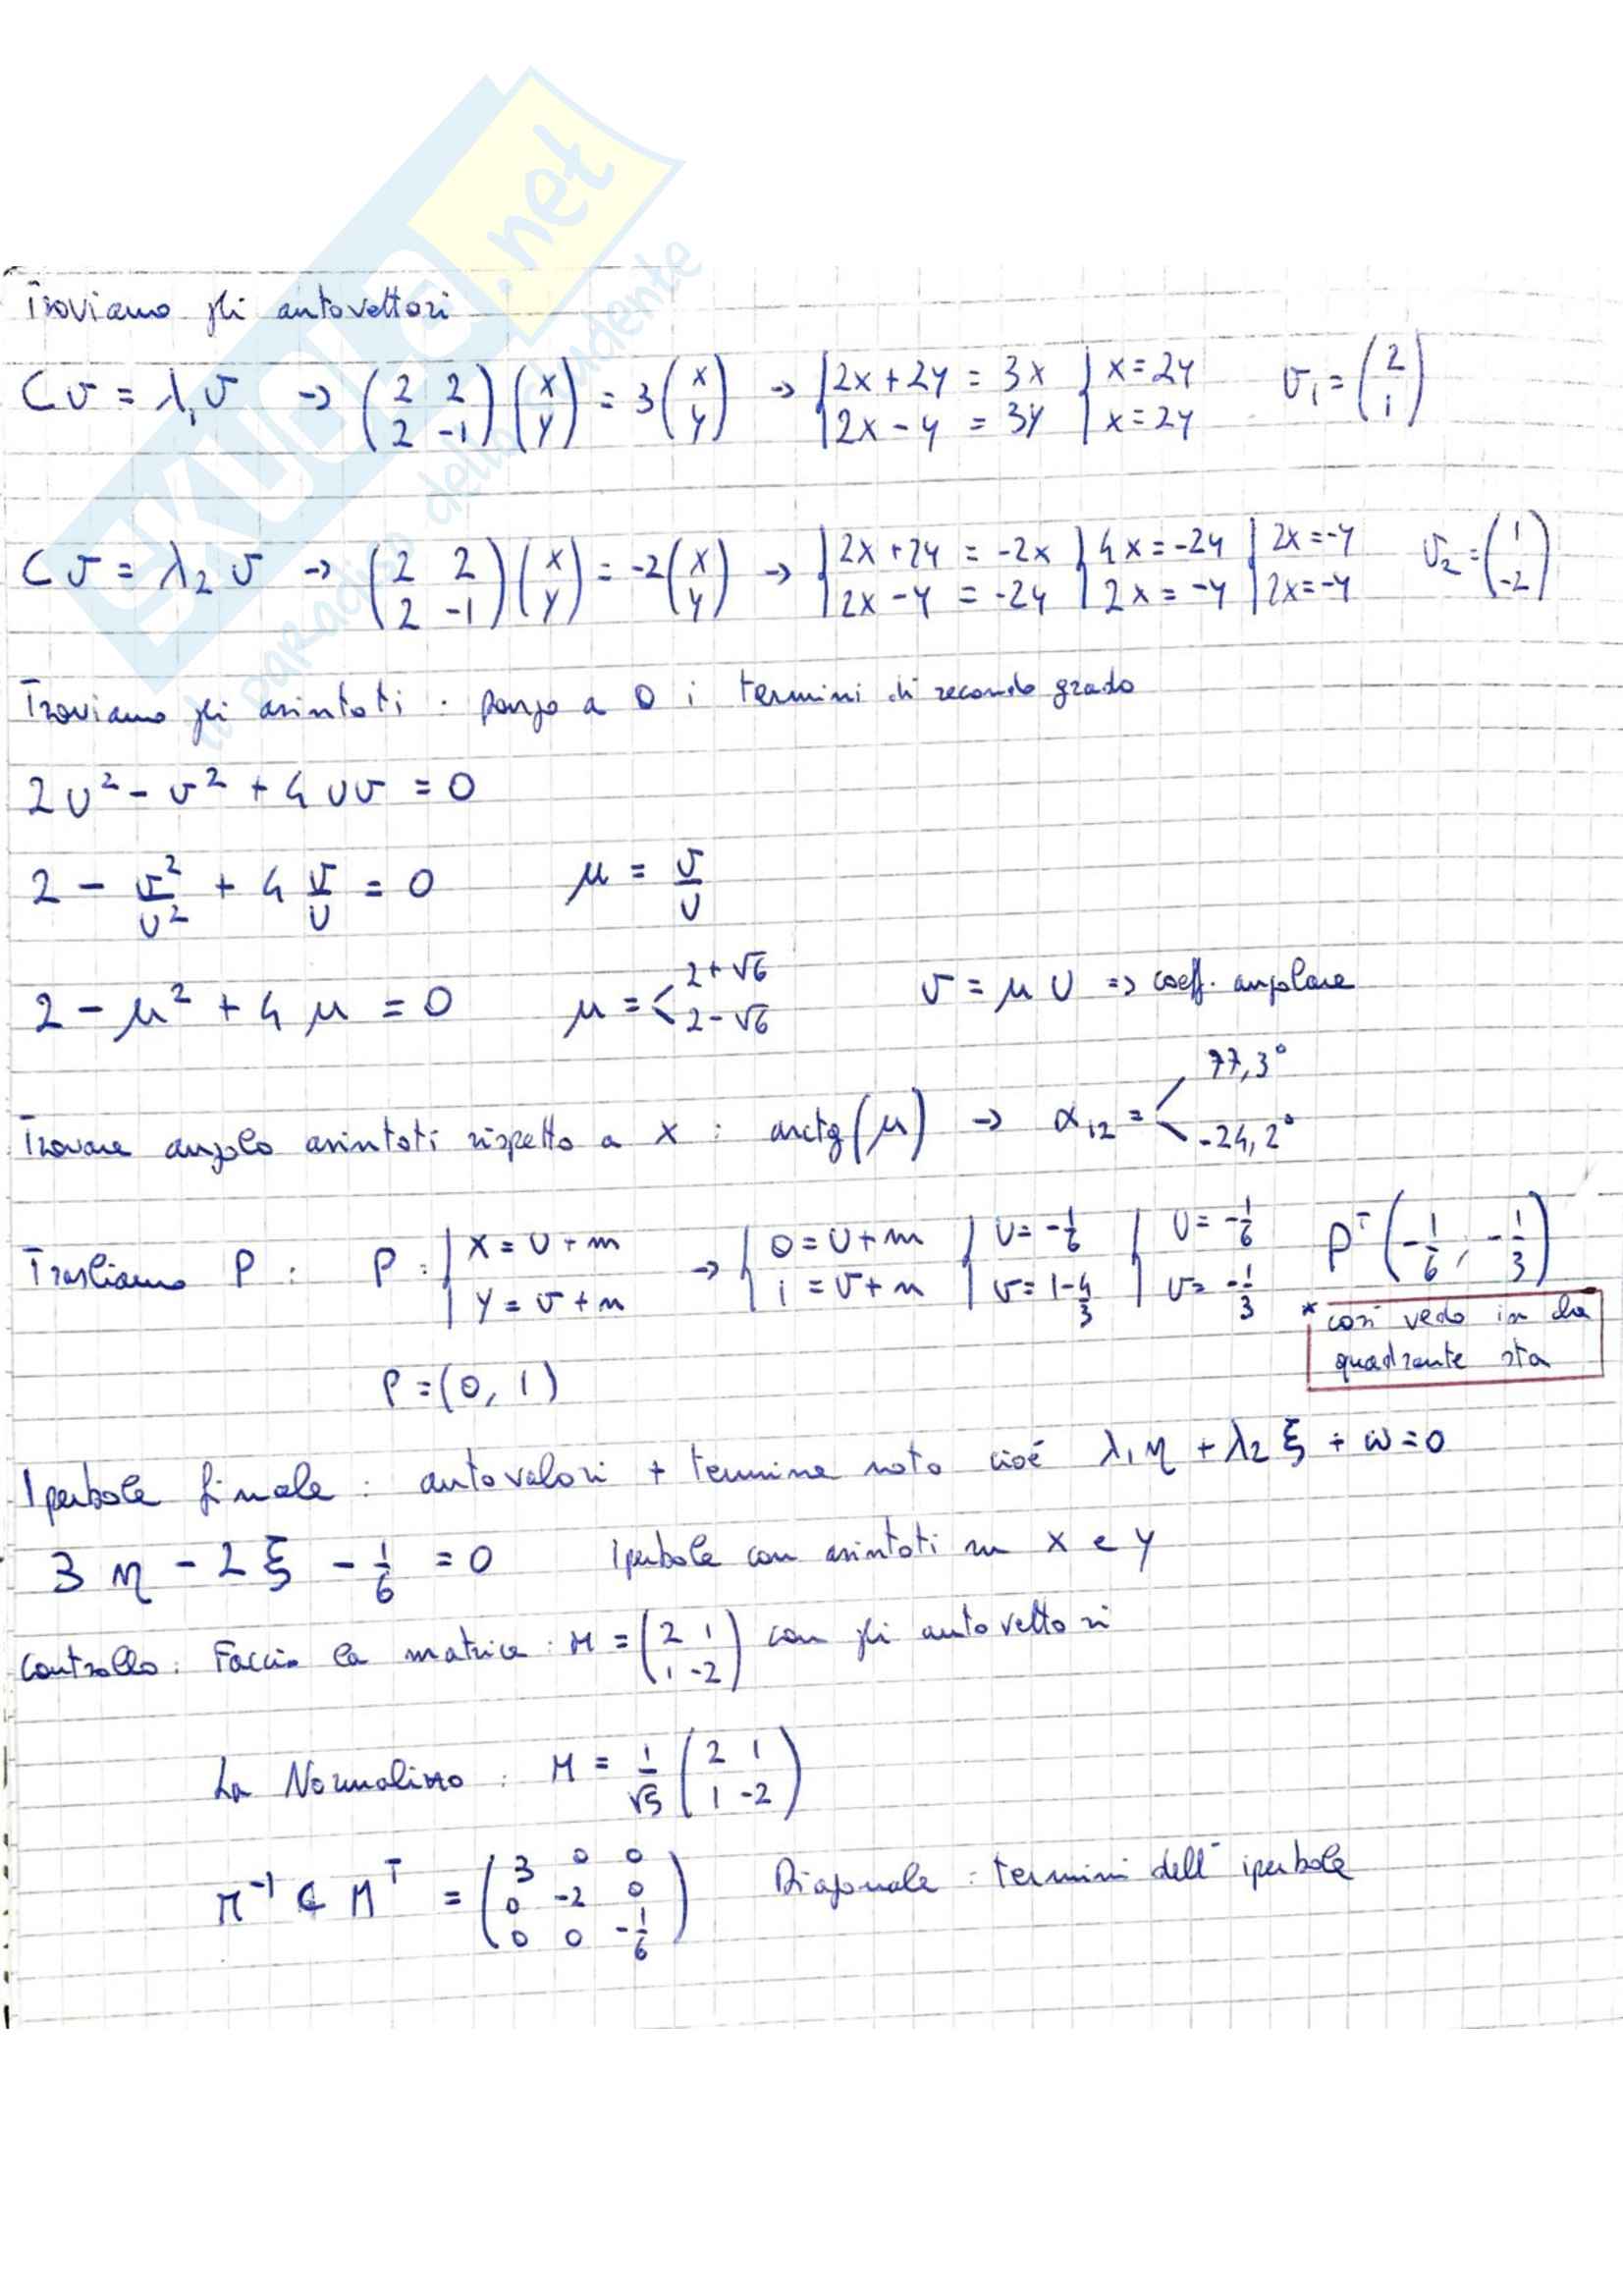 SKUOLA.net
il paradiso dello studente
Troviamo gli autovettori
Cv = λ₁v → (2 2; 2 -1)(x; y) = 3(x; y) → {2x+2y = 3x; 2x-y = 3y {x=2y; x=2y v₁ = (2; 1)
Cv = λ₂v → (2 2; 2 -1)(x; y) = -2(x; y) → {2x+2y = -2x; 2x-y = -2y {4x=-2y; 2x=-y {2x=-y; 2x=-y v₂ = (1; -2)
Troviamo gli asintoti : pongo a 0 i termini di secondo grado
2u² - v² + 4uv = 0
2 - v²/u² + 4 v/u = 0 μ = v/u
2 - μ² + 4μ = 0 μ = < 2+√6; 2-√6 v = μu => coeff. angolare
Trovare angolo asintoti rispetto a x : arctg(μ) → α₁₂ = < 77,3°; -24,2°
Trasliamo P : P : {x = u+m; y = v+n → {0 = u+m; 1 = v+n {u = -1/6; v = 1-4/3 {u = -1/6; v = -1/3 Pᵀ(-1/6; -1/3)
* così vedo in che
quadrante sta
P = (0, 1)
Iperbole finale : autovalori + termine noto cioè λ₁η + λ₂ξ + ω = 0
3η - 2ξ - 1/6 = 0 Iperbole con asintoti su x e y
Controllo : Faccio la matrice : M = (2 1; 1 -2) con gli autovettori
La Normalizzo : M = 1/√5 (2 1; 1 -2)
M⁻¹ C Mᵀ = (3 0 0; 0 -2 0; 0 0 -1/6) Diagonale : termini dell' iperbole